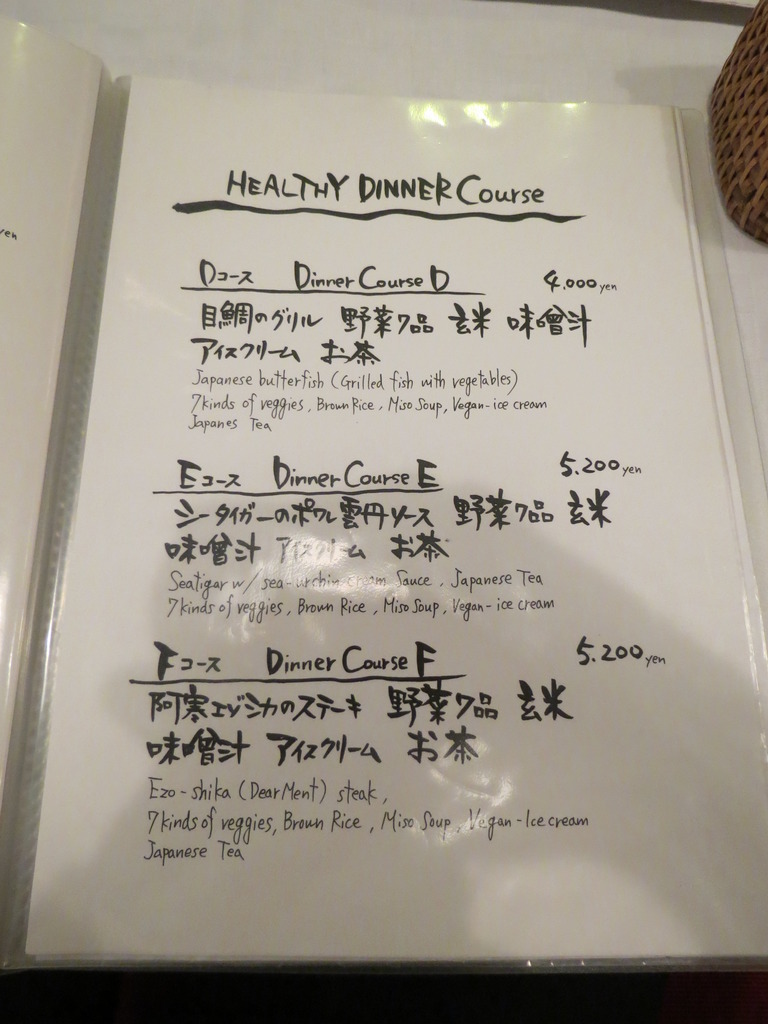 yen
HEALTHY DINNER Course
Dコース Dinner Course D 4.000 yen
目鯛のグリル 野菜7品 玄米 味噌汁
アイスクリーム お茶
Japanese butterfish (Grilled fish with vegetables)
7kinds of veggies, Brown Rice, Miso Soup, Vegan-ice cream
Japanes Tea
Eコース Dinner Course E 5.200 yen
シータイガーのポワレ雲丹ソース 野菜7品 玄米
味噌汁 アイスクリーム お茶
Seatigar w/ sea-urchin cream Sauce, Japanese Tea
7kinds of veggies, Brown Rice, Miso Soup, Vegan-ice cream
Fコース Dinner Course F 5.200 yen
阿寒エゾシカのステーキ 野菜7品 玄米
味噌汁 アイスクリーム お茶
Ezo-shika (DearMent) steak,
7kinds of veggies, Brown Rice, Miso Soup, Vegan-Ice cream
Japanese Tea